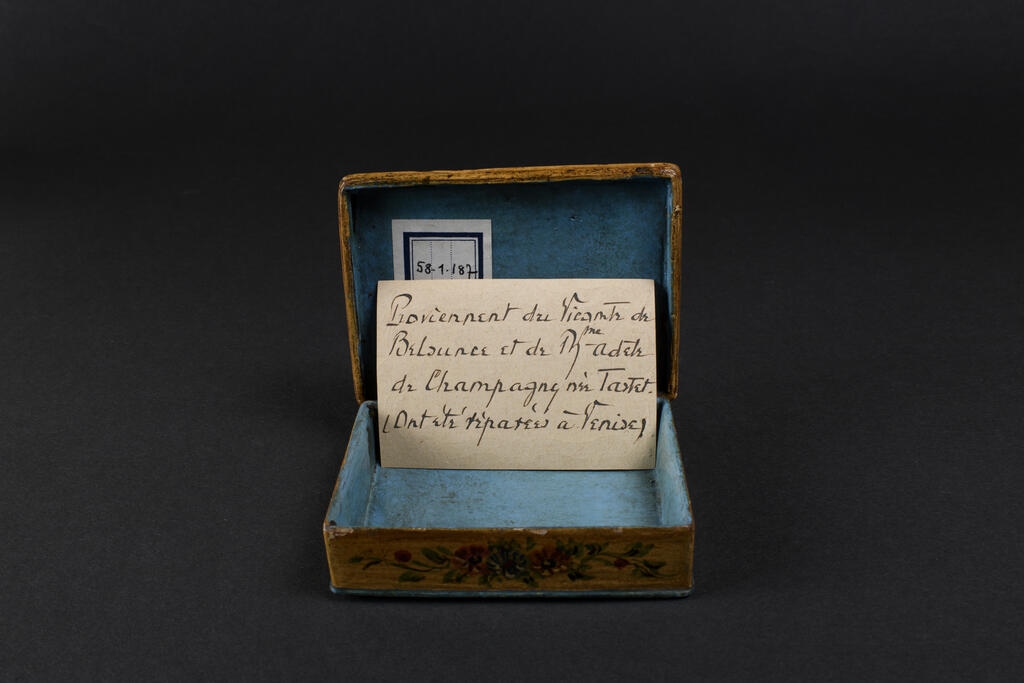 58-1-187
Proviennent du Vicomte de
Belsunce et de Mme adèle
de Champagny née Tastet.
(Ont été réparées à Venise)